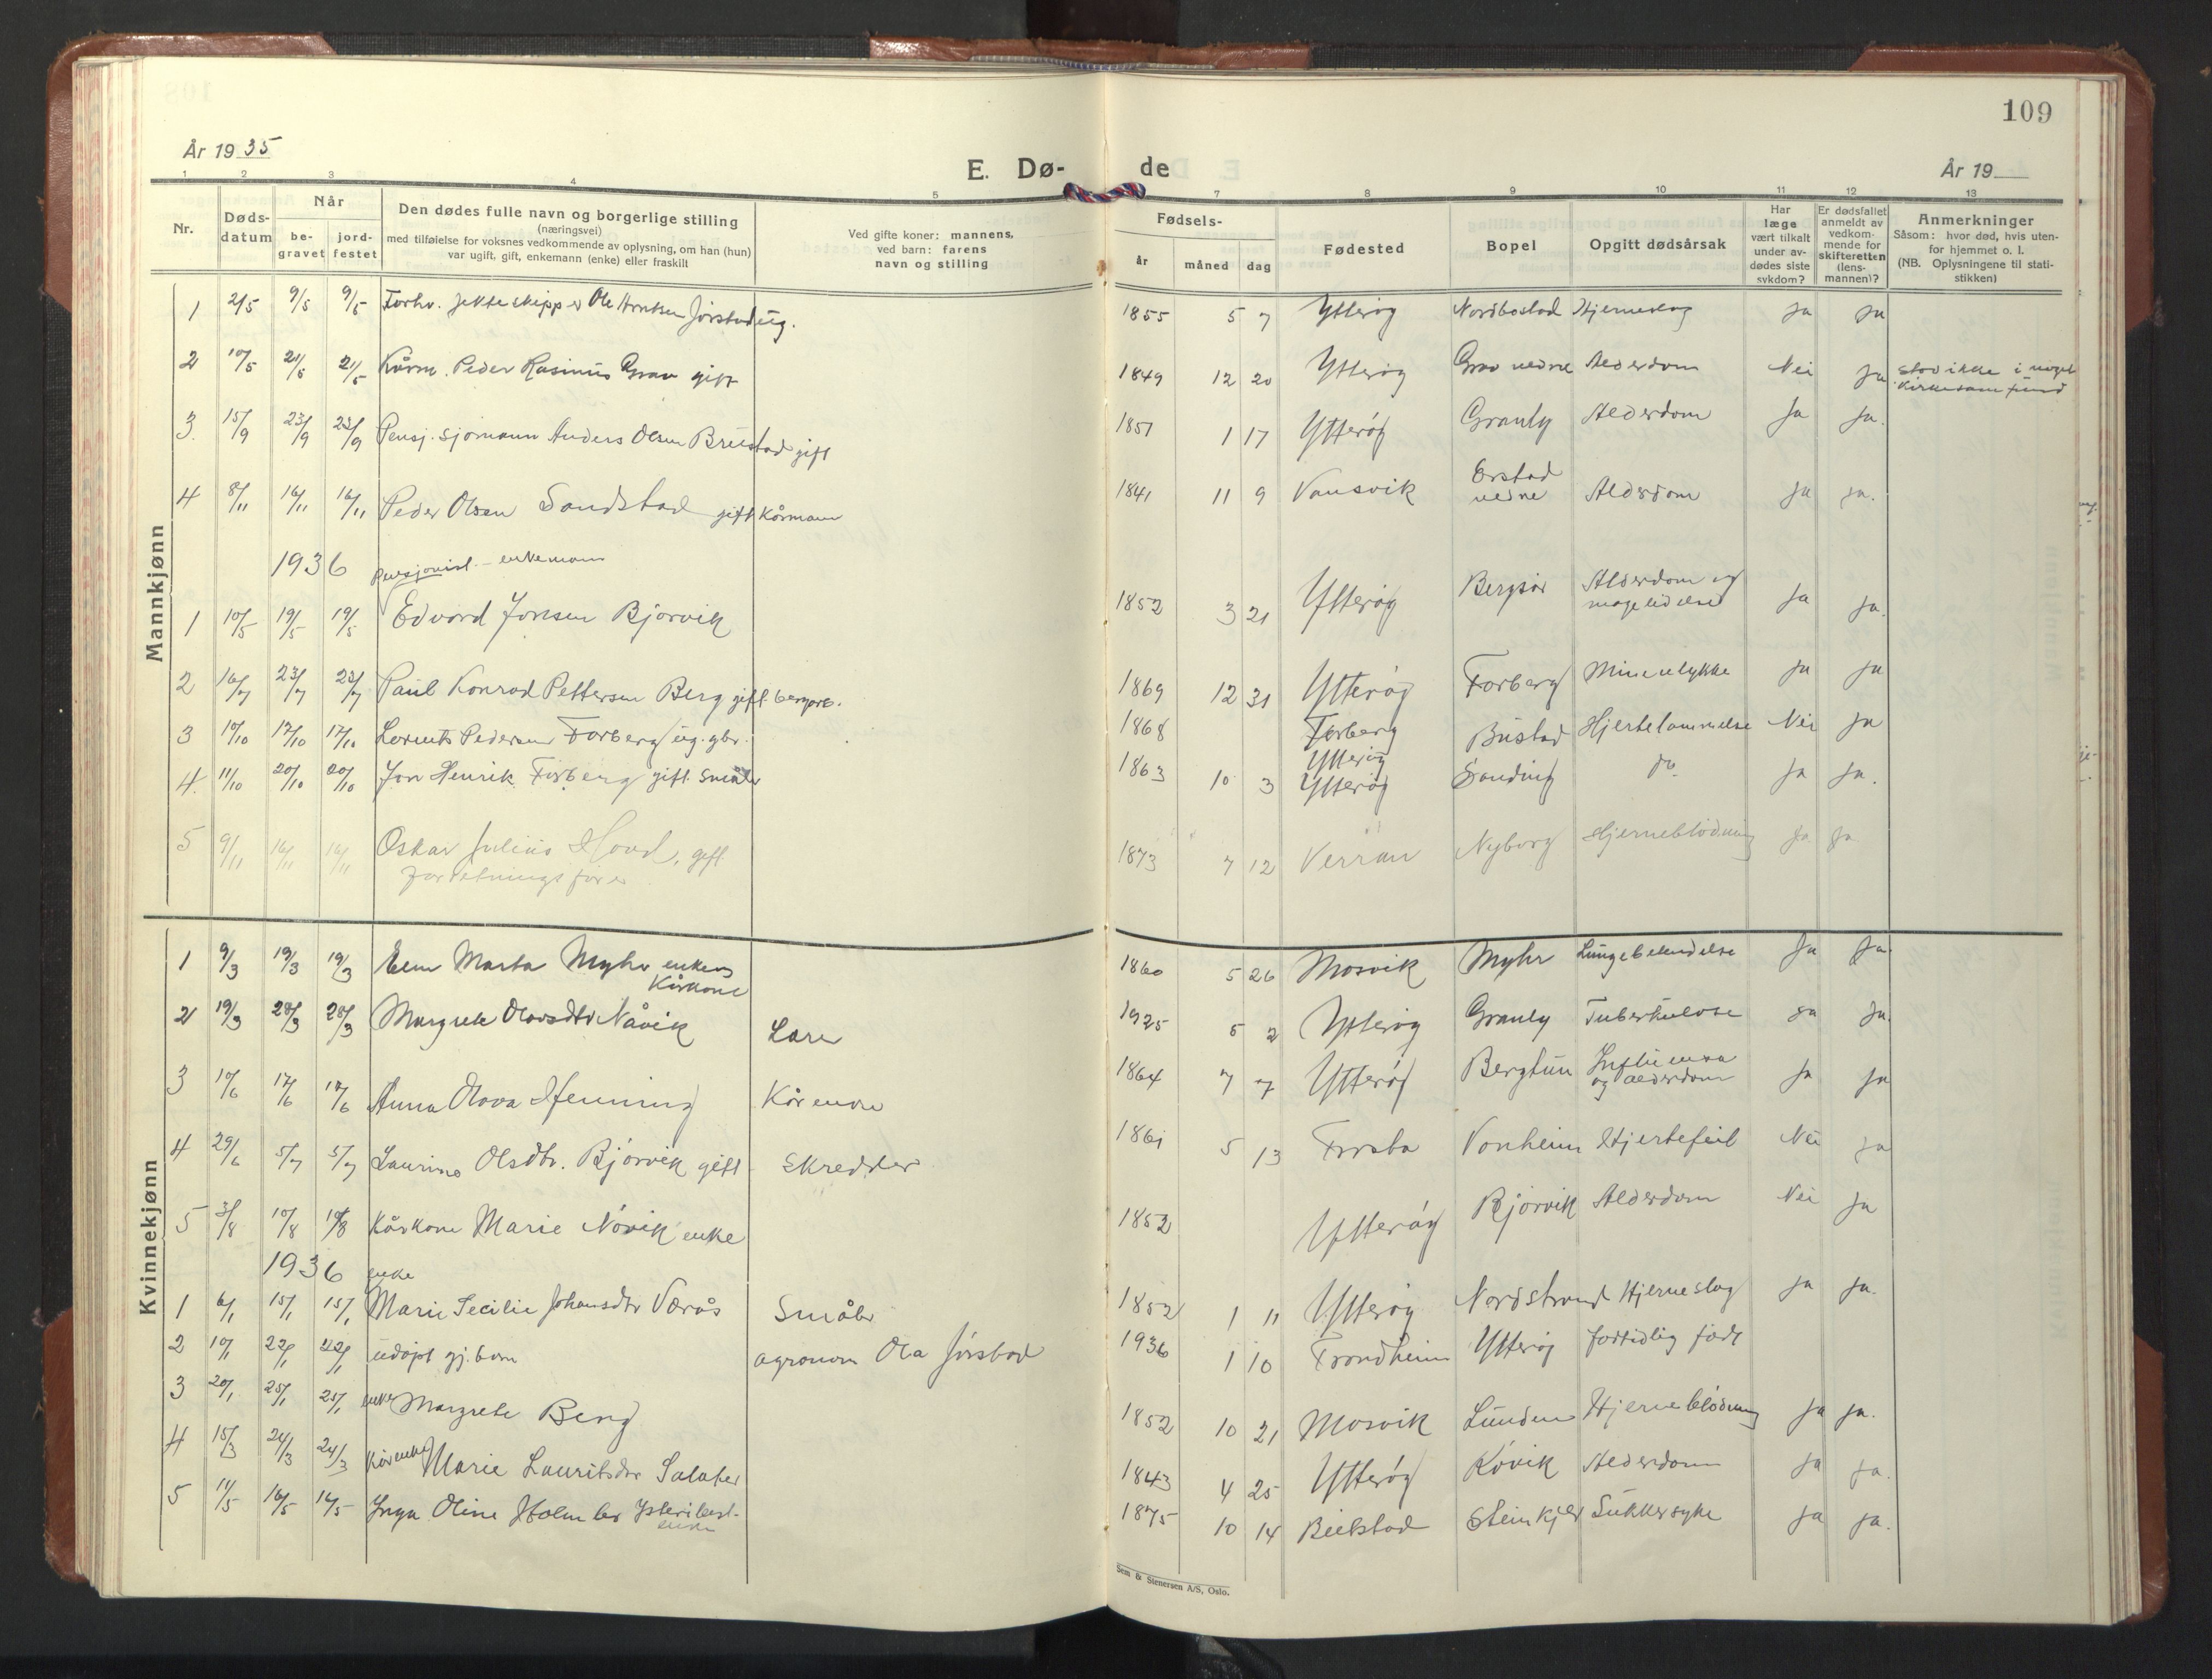 109
År 1935
E. Dø-
de
År 19
1 2 3 4 5 7 8 9 10 11 12 13
Nr.
Døds-
datum
Når
be-
gravet
jord-
festet
Den dødes fulle navn og borgerlige stilling
(næringsvei)
med tilføielse for voksnes vedkommende av oplysning, om han (hun)
var ugift, gift, enkemann (enke) eller fraskilt
Ved gifte koner: mannens,
ved barn: farens
navn og stilling
Fødsels-
år
måned
dag
Fødested
Bopel
Opgitt dødsårsak
Har
læge
vært tilkalt
under av-
dødes siste
sykdom?
Er dødsfallet
anmeldt av
vedkom-
mende for
skifteretten
(lens-
mannen)?
Anmerkninger
Såsom: hvor død, hvis uten-
for hjemmet o. l.
(NB. Oplysningene til stati-
stikken)
Mannkjønn
1 2/5 9/5 9/5 Forhv. jekteskipper Ole Jørstad ug. 1855 5 7 Ytterøy Nordbostad Hjerneslag Ja Ja
2 10/5 21/5 21/5 Kårm. Peder Rasmus Grav gift 1849 12 20 Ytterøy Grav nedre Alderdom Nei Ja stod ikke i noget
kirkesamfund
3. 15/9 23/9 23/9 Pensj. sjømann Anders Olsen Bustad gift 1851 1 17 Ytterøy Granly Alderdom Ja Ja.
4 8/11 16/11 16/11 Peder Olsen Sandstad gift Kårmann 1841 11 9 Vansvik Erstad
nedre Alderdom Ja Ja.
1936 pensjonist - enkemann
1 10/5 19/5 19/5 Edvard Jonsen Bjørvik 1852 3 21 Ytterøy Bergsør Alderdom og
magelidelse Ja Ja.
2 16/7 23/7 23/7 Paul Konrad Pettersen Berg gift. bergarb. 1869 12 31 Ytterøy Forberg Mineulykke Ja Ja
3 10/10 17/10 17/10 Lorents Pedersen Forberg ug. gbr. 1868 Forberg
Ytterøy Bustad Hjertelammelse Nei Ja
4. 11/10 20/10 20/10 Jon Henrik Forberg gift. Småbr 1863 10 3 Ytterøy Sanding do. Ja Ja.
5 9/11 16/11 16/11 Oskar Julius Hovd, gift
forretningsfører 1873 7 12 Verran Nyborg Hjerneblødning Ja Ja
Kvinnekjønn
1 9/3 19/3 19/3 Marta Myhr enke
Kårkone 1860 5 26 Mosvik Myhr Lungebetendelse Ja Ja.
2 19/3 28/3 28/3 Margrete Olavsdtr Nåvik 1925 5 2 Ytterøy Granly Tuberkulose Ja Ja.
3 10/6 17/6 17/6 Anna Olava Henning Kårenke 1864 7 7 Ytterøy Bergtun Influensa
og alderdom Ja Ja
4 29/6 5/7 5/7 Laurine Olsdtr. Bjørvik gift Skredder 1861 5 13 Frosta Vonheim Hjertefeil Nei Ja
5 3/8 10/8 10/8 Kårkone Marie Nøvik enke 1852 Ytterøy Bjørvik Alderdom Nei Ja
1936 enke
1 6/1 15/1 15/1 Marie Secilie Johansdtr Værås Småbr 1852 1 11 Ytterøy Nordstrand Hjerneslag Ja Ja.
2 10/1 22/1 22/1 udøpt pj. barn agronom Ola Jørstad 1936 1 10 Trondheim Ytterøy fortidlig født
3 20/1 25/1 25/1 enke Margrete Berg 1852 10 21 Mosvik Lunden Hjerneblødning Ja Ja.
4 15/3 24/3 24/3 Kårenke Marie Lauritsdtr Salater 1843 4 25 Ytterøy Køvik Alderdom Ja Ja.
5 11/5 16/5 16/5 Inga Oline Ysteribest.
enke 1875 10 14 Beitstad Steinkjer Sukkersyke Ja Ja.
Sem & Stenersen A/S, Oslo.